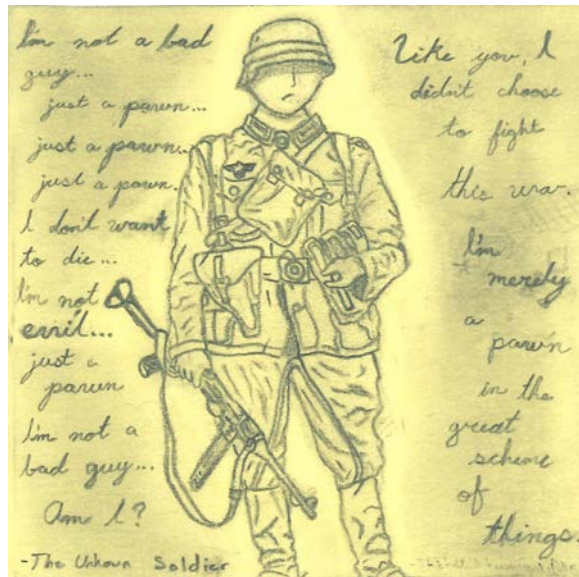 I'm not a bad
guy...
just a pawn...
just a pawn...
just a pawn.
I don't want
to die...
I'm not
evil...
just a
pawn
I'm not a
bad guy...
Am I?
-The Unkown Soldier
Like you, I
didn't choose
to fight
this war.
I'm
merely
a
pawn
in the
great
scheme
of
things.